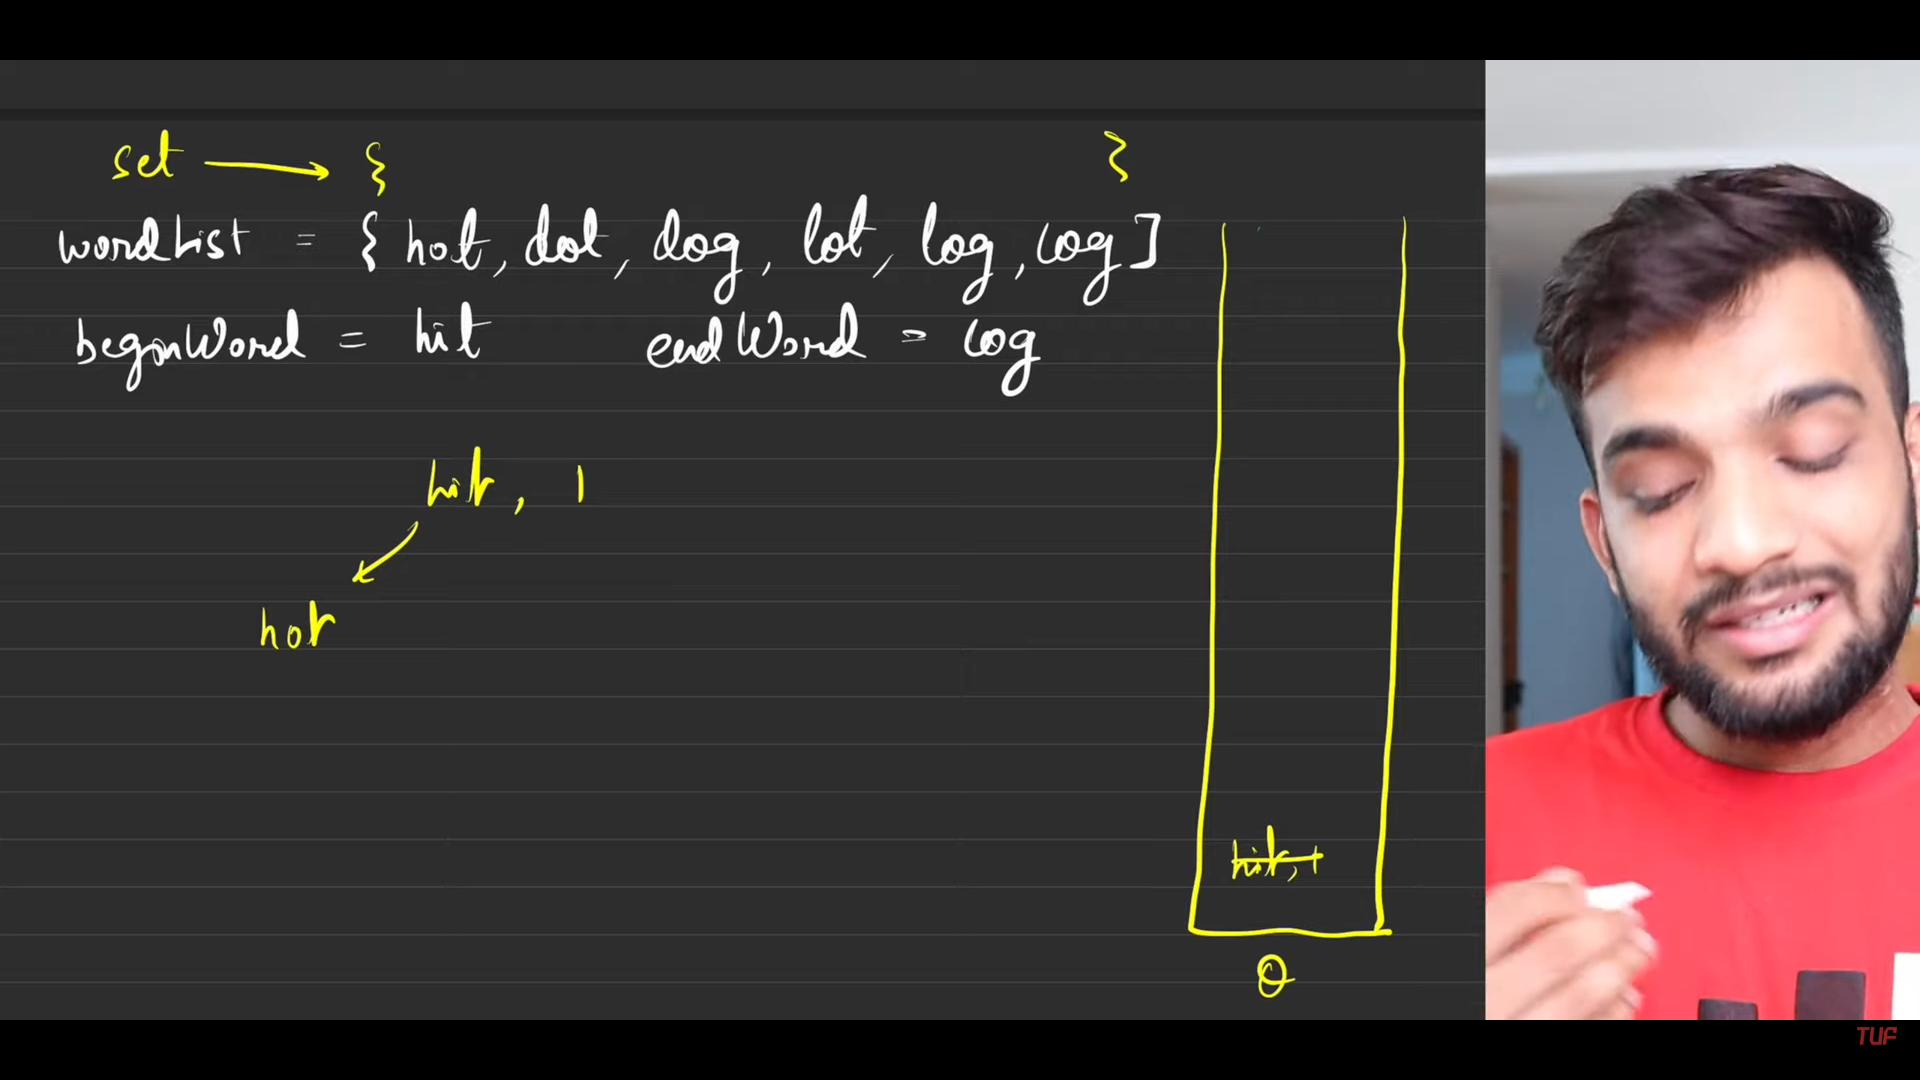 set → { }
wordList = { hot, dot, dog, lot, log, cog ]
beginWord = hit endWord = cog
hit, 1
hot
hit, 1
Q
TUF